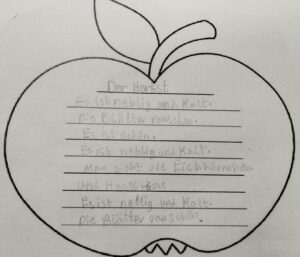 Der Herbst
Es ist neblig und Kalt.
Die Blätter rauschen.
Es ist schön.
Es ist neblig und Kalt.
Man sieht die Eichhörnchen.
und Haselnüsse
Es ist neblig und Kalt.
Die Blätter rauschen.